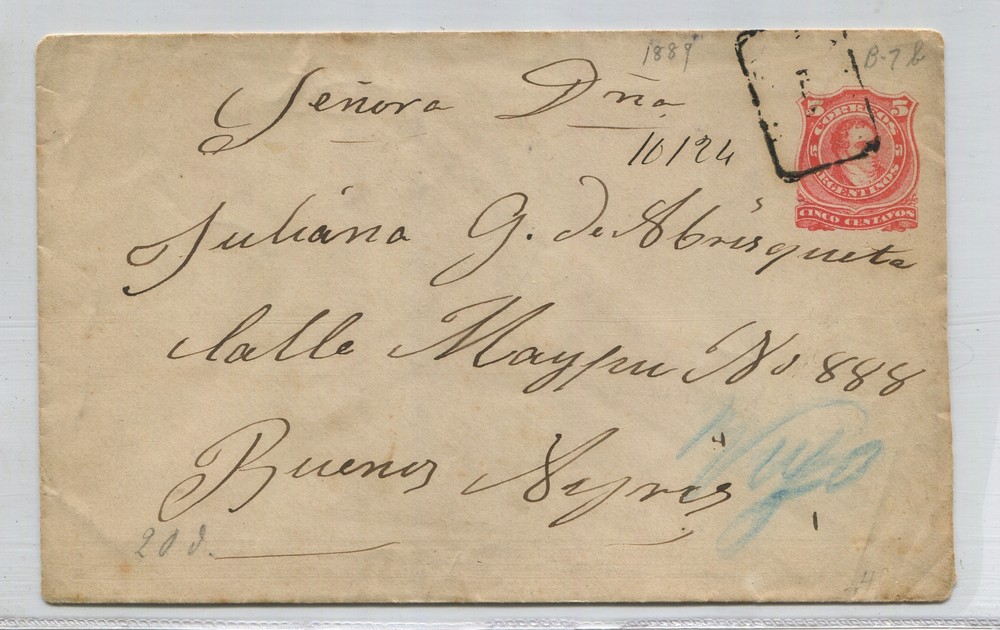 1889 B-7 b
Señora Dña
10124
Juliana G. de Abrisqueta
Calle Maypu No 888
Buenos Ayres
20 d.
5 5
CORREOS
ARGENTINOS
CINCO CENTAVOS